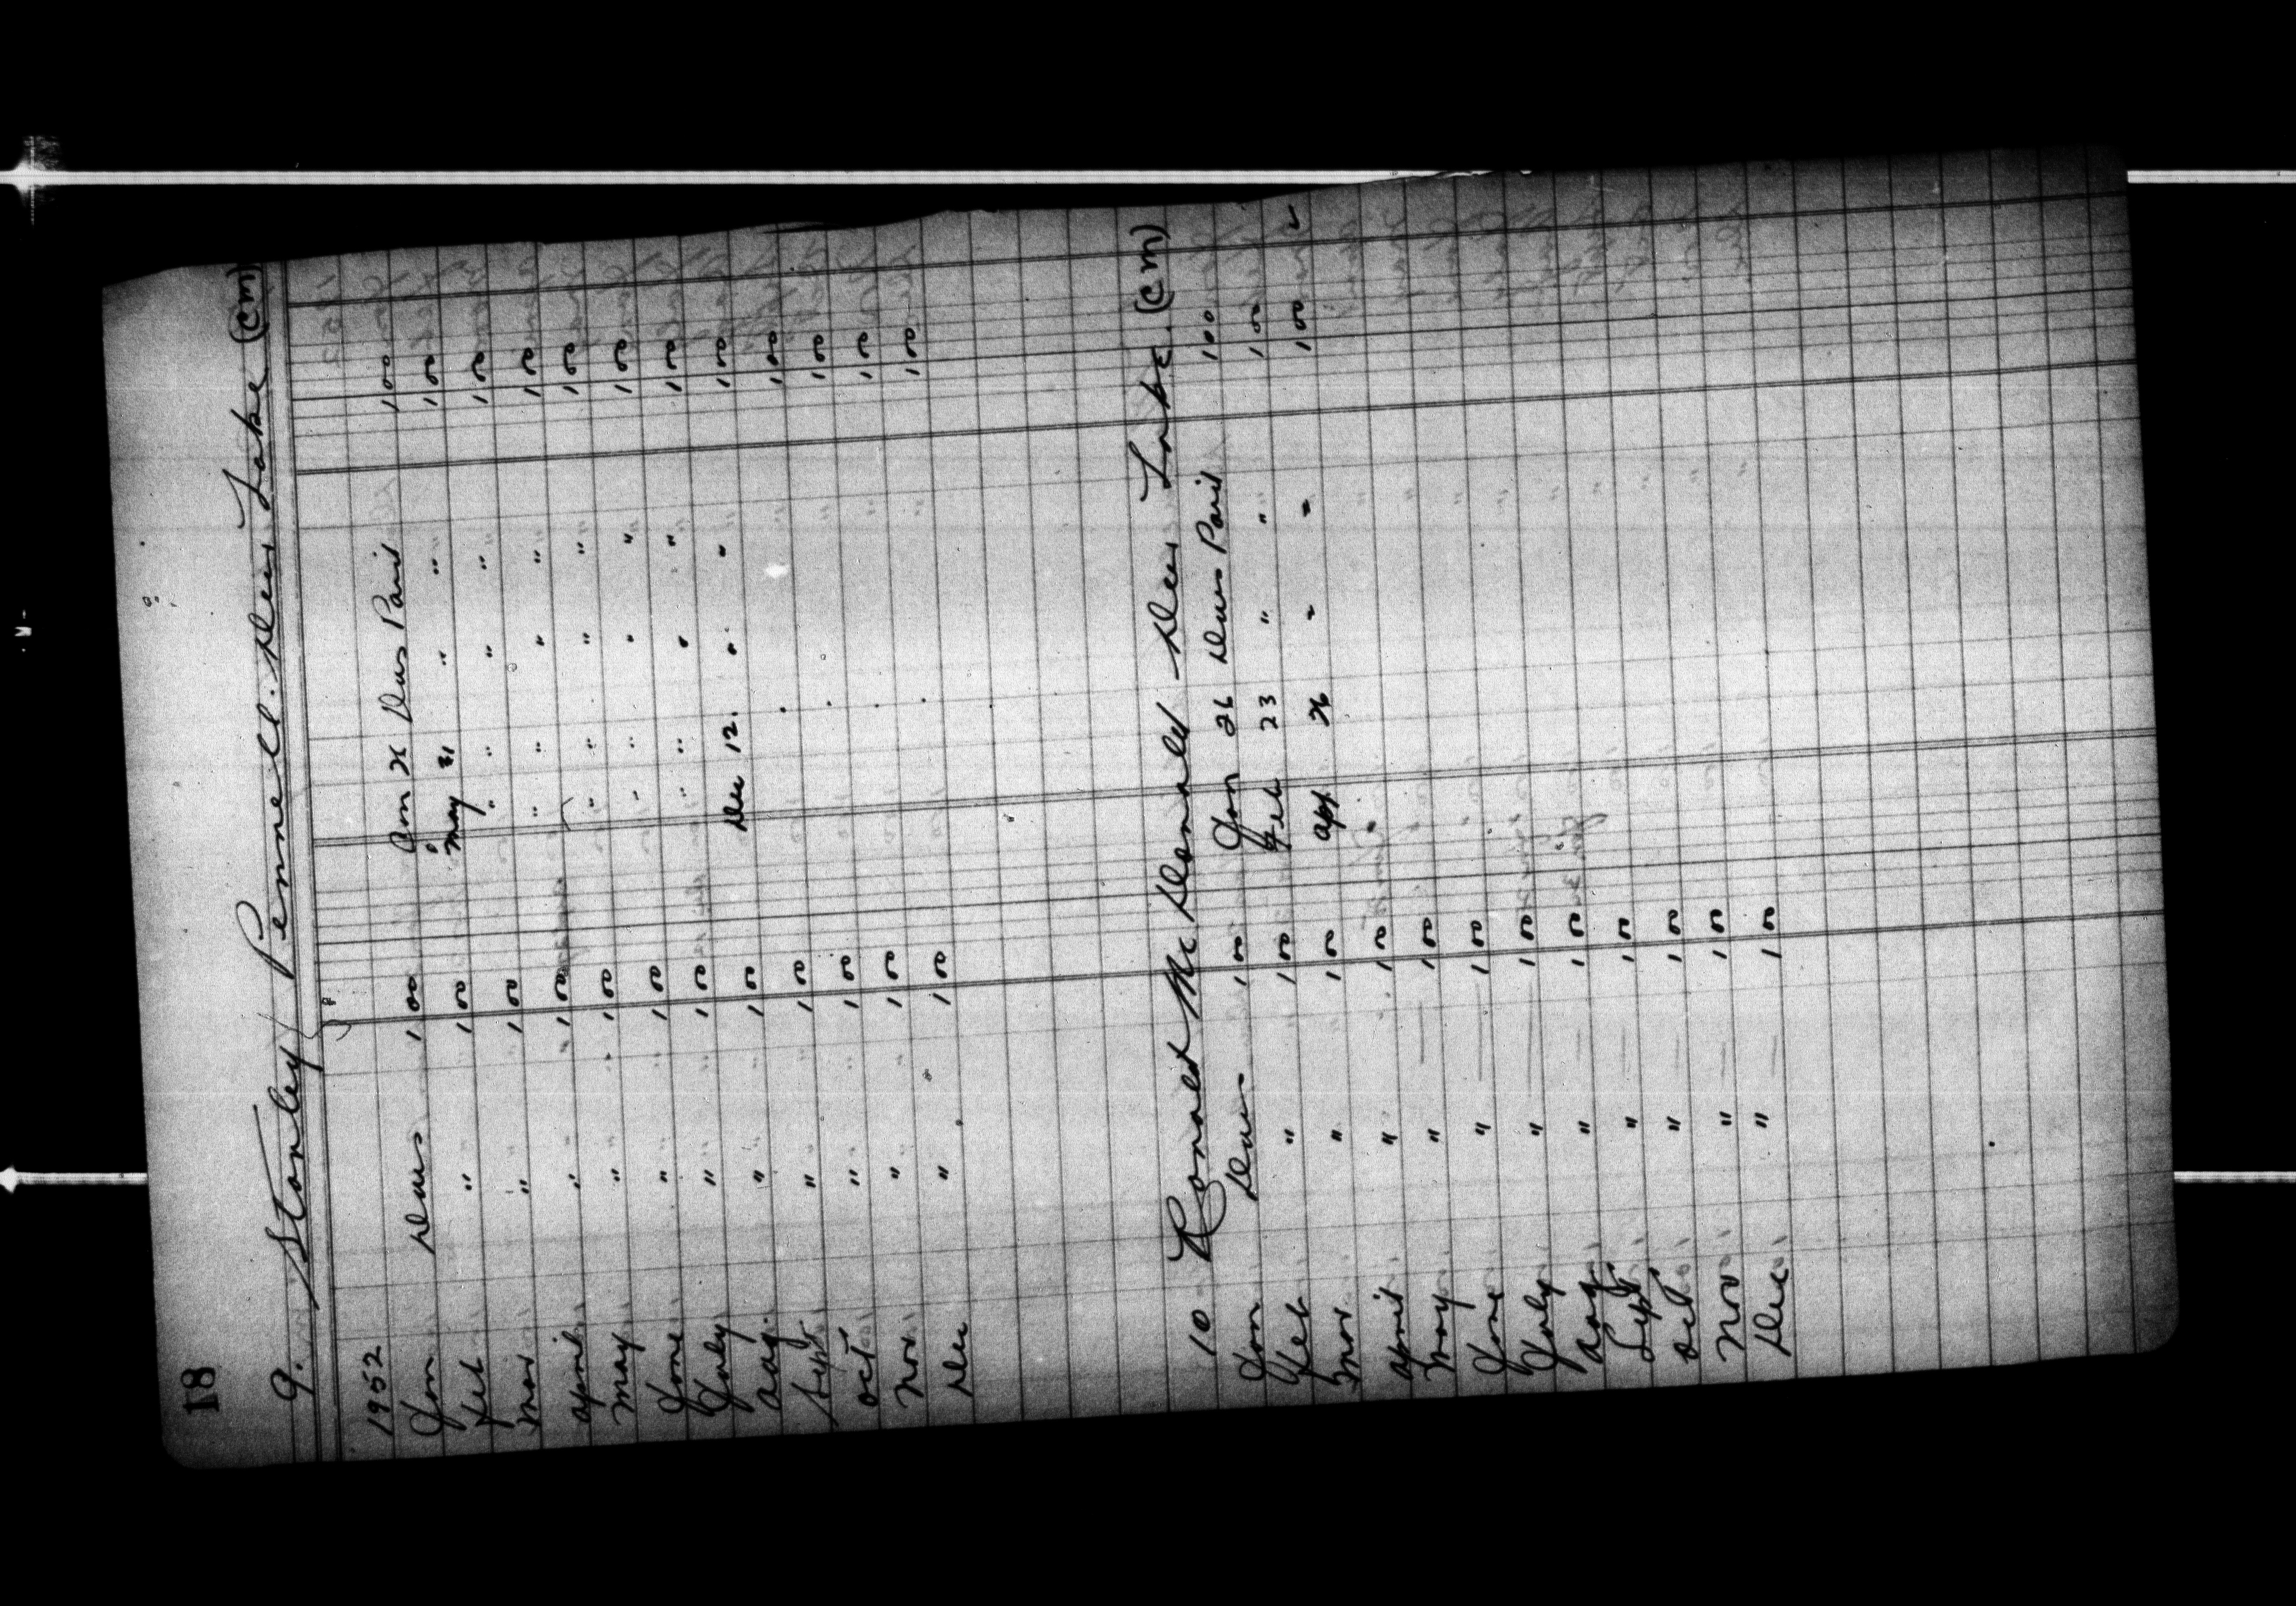 18
9. Stanley Pennell. Deer Lake (CM)
1952
Jan Dues 1 00 Jan 26 Dues Paid 1 00
Feb " 1 00 May 31 " " 1 00
Mar " 1 00 " " " " 1 00
April " 1 00 " " " " 1 00
May " 1 00 " " " " 1 00
June " 1 00 " " " " 1 00
July " 1 00 " " " " 1 00
Aug. " 1 00 Dec 12. " " 1 00
Sept " 1 00 1 00
Oct " 1 00 1 00
Nov. " 1 00 1 00
Dec " 1 00 1 00
10 Ronald McDonald Deer Lake. (CM)
Jan Dues 1 00 Jan 26 Dues Paid 1 00
Feb " 1 00 Feb 23 " " 1 00
Mar. " 1 00 Apr. 26 " " 1 00
April " 1 00
May " 1 00
June " 1 00
July " 1 00
Aug " 1 00
Sept " 1 00
Oct " 1 00
Nov " 1 00
Dec " 1 00